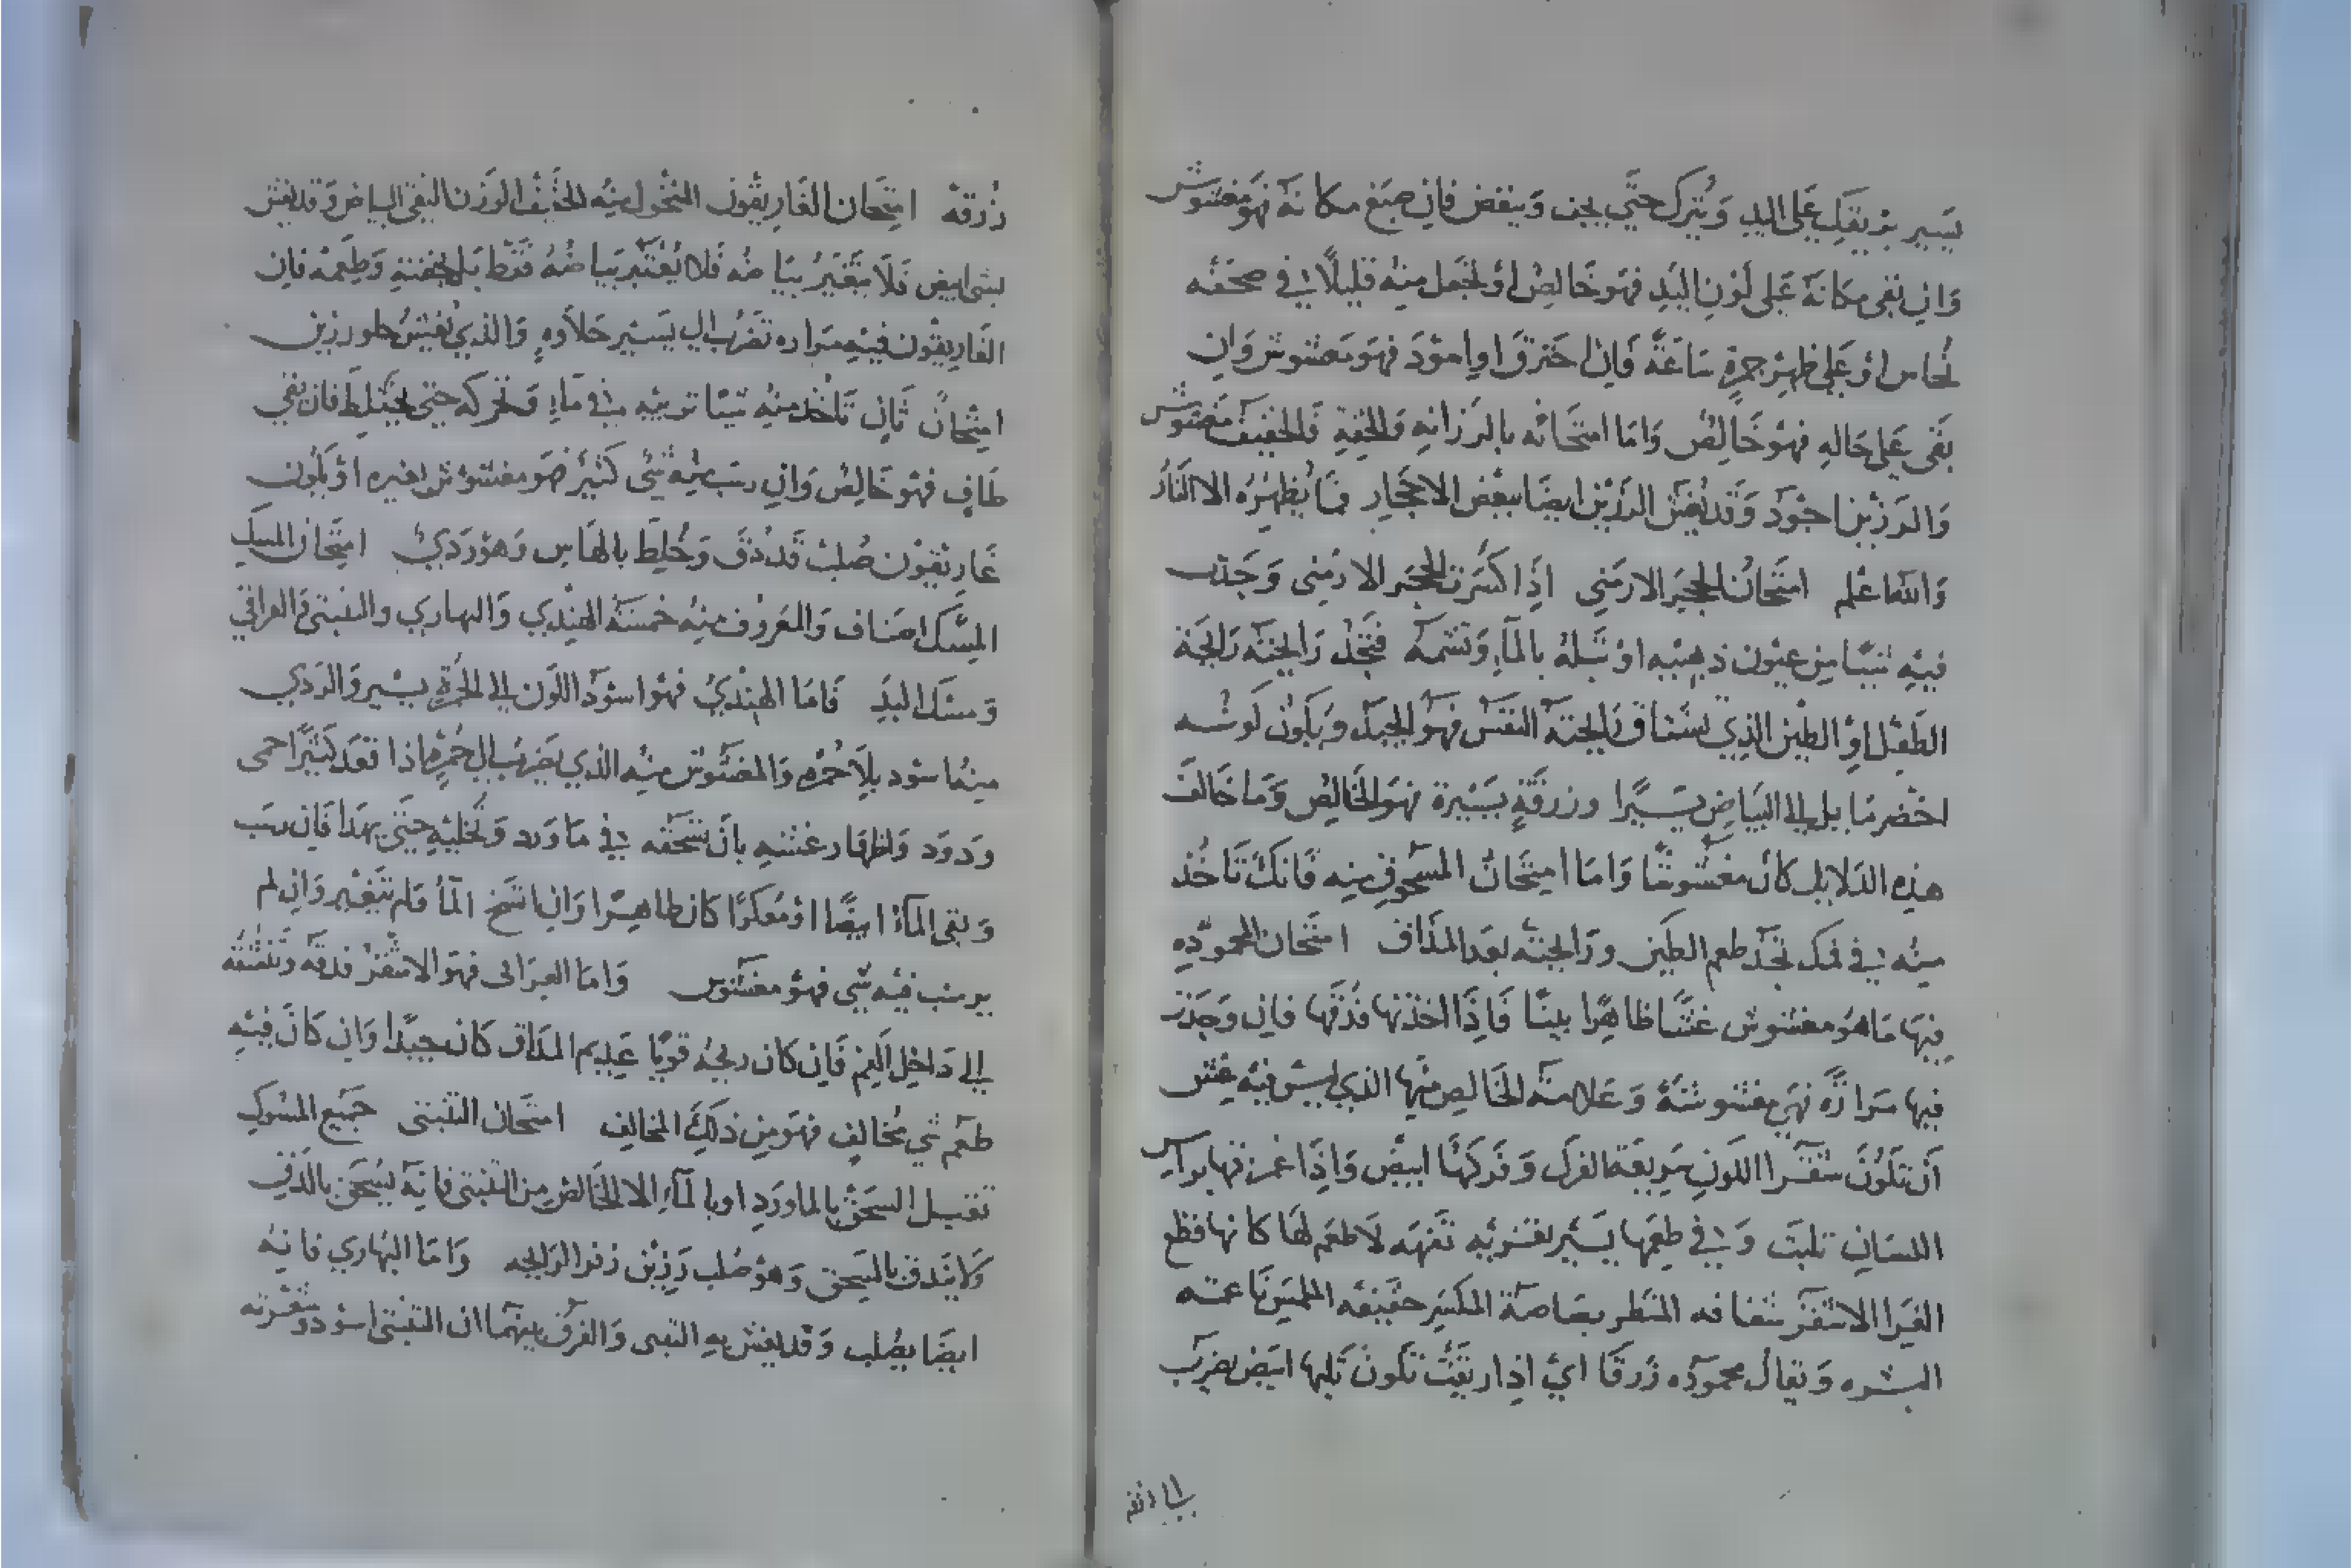 يسير بزيت على اليد ويترك حتى يجف وينفض فان صبغ مكانه فهو مغشوش
وان نقى مكانه على لون اليد فهو خالص او تجعل منه قليلا في صحفه
نحاس او على ظهر جمرة ساعة فان احترق او اسود فهو مغشوش وان
بقى على حاله فهو خالص واما امتحانه بالرزانه والخفة فالخفيف مغشوش
والرزين اجود وقد يغش الرزين ايضا ببعض الاحجار فما يظهره الا النار
والله اعلم امتحان الحجر الارمني اذا كسرت الحجر الارمنى وجدت
فيه شيا من عيون ذهبيه او تبله بالماء وتشمه فتجد رايحته رايحة
الطفل او الطين الذي رايحته النفس فهو الجيد ويكون لونه
اخضر مايل الى البياض يسيرا وزرقة يسيرة فهو الخالص وما خالف
هذه الدلايل كان مغشوشا واما امتحان المسحوق منه فانك تاخذ
منه في فمك تجد طعم الطين ورايحته بعد المذاق امتحان المحموده
فيها ما هو مغشوش غشا ظاهرا بينا فاذا اخذتها فذقها فان وجدت
فيها مرارة فهي مغشوشة وعلامة الخالص منها الذي ليس فيه غش
ان تكون شقرا اللون سريعة الفرك وفركها ابيض واذا غمزتها براس
اللسان وفي طعمها يسير تفهه لا طعم لها كانها قطع
الغرا الاشقر شفافه المنظر المكسر خفيفه الملمس ناعمه
البشره ويقال محموده زرقا اي اذا ريقت تكون ابيض يضرب
الى ازرقه
زرقة امتحان الغاريقون المنخول منه الخفيف الوزن النقى البياض وقد يغش
بشى ابيض فلا يتغير بياضه فلا يعتبر بياضه فقط بل بخفته وطعمه فان
الغاريقون فيه مراره تضرب الى يسير حلاوه والذي يغش حلو رزين
امتحان ثان تاخذ منه شيا ترميه في ماء وتحركه حتى يختلط فان بقي
طاف فهو خالص وان رسب منه شي كثير فهو مغشوش بغيره او يكون
غاريقون صلب قد دق وخلط بالهاش وهو ردي امتحان المسك
المسك اصناف والمعروف منه خمسة الهندي والبهاري والتبتي والعراقي
ومسك اليد فاما الهندي فهو اسود اللون الى الحمرة يسير والردي
منه اسود بلا حمره والمغشوش منه الذي يضرب الى حمره اذا قعد كثيرا حمى
ودود واظهار غشه بان تسحقه في ماورد وتخليه حتى يهدا فان رسب
وبقى الماء ابيضا او معكرا كان طاهرا وان اتسخ الما ولم يتغير وان لم
يرسب فيه شي فهو مغشوش واما العراقى فهو الاشقر فدقه
الى داخل الفم فان كان ريحه قويا عديم المذاق كان جيدا وان كان فيه
طعم شي مخالف فهو من ذلك المخالف امتحان التبتى جميع المسوك
تقبل السحق بالماورد او بالماء الا الخالص من التبتى فانه يسحق بالدق
ولا يندق بالسحق وهو صلب رزين زفر الرايحه واما البهاري فانه
ايضا يصلب وقد يغش به التبتى والفرق بينهما ان التبتى اسود وشعرته